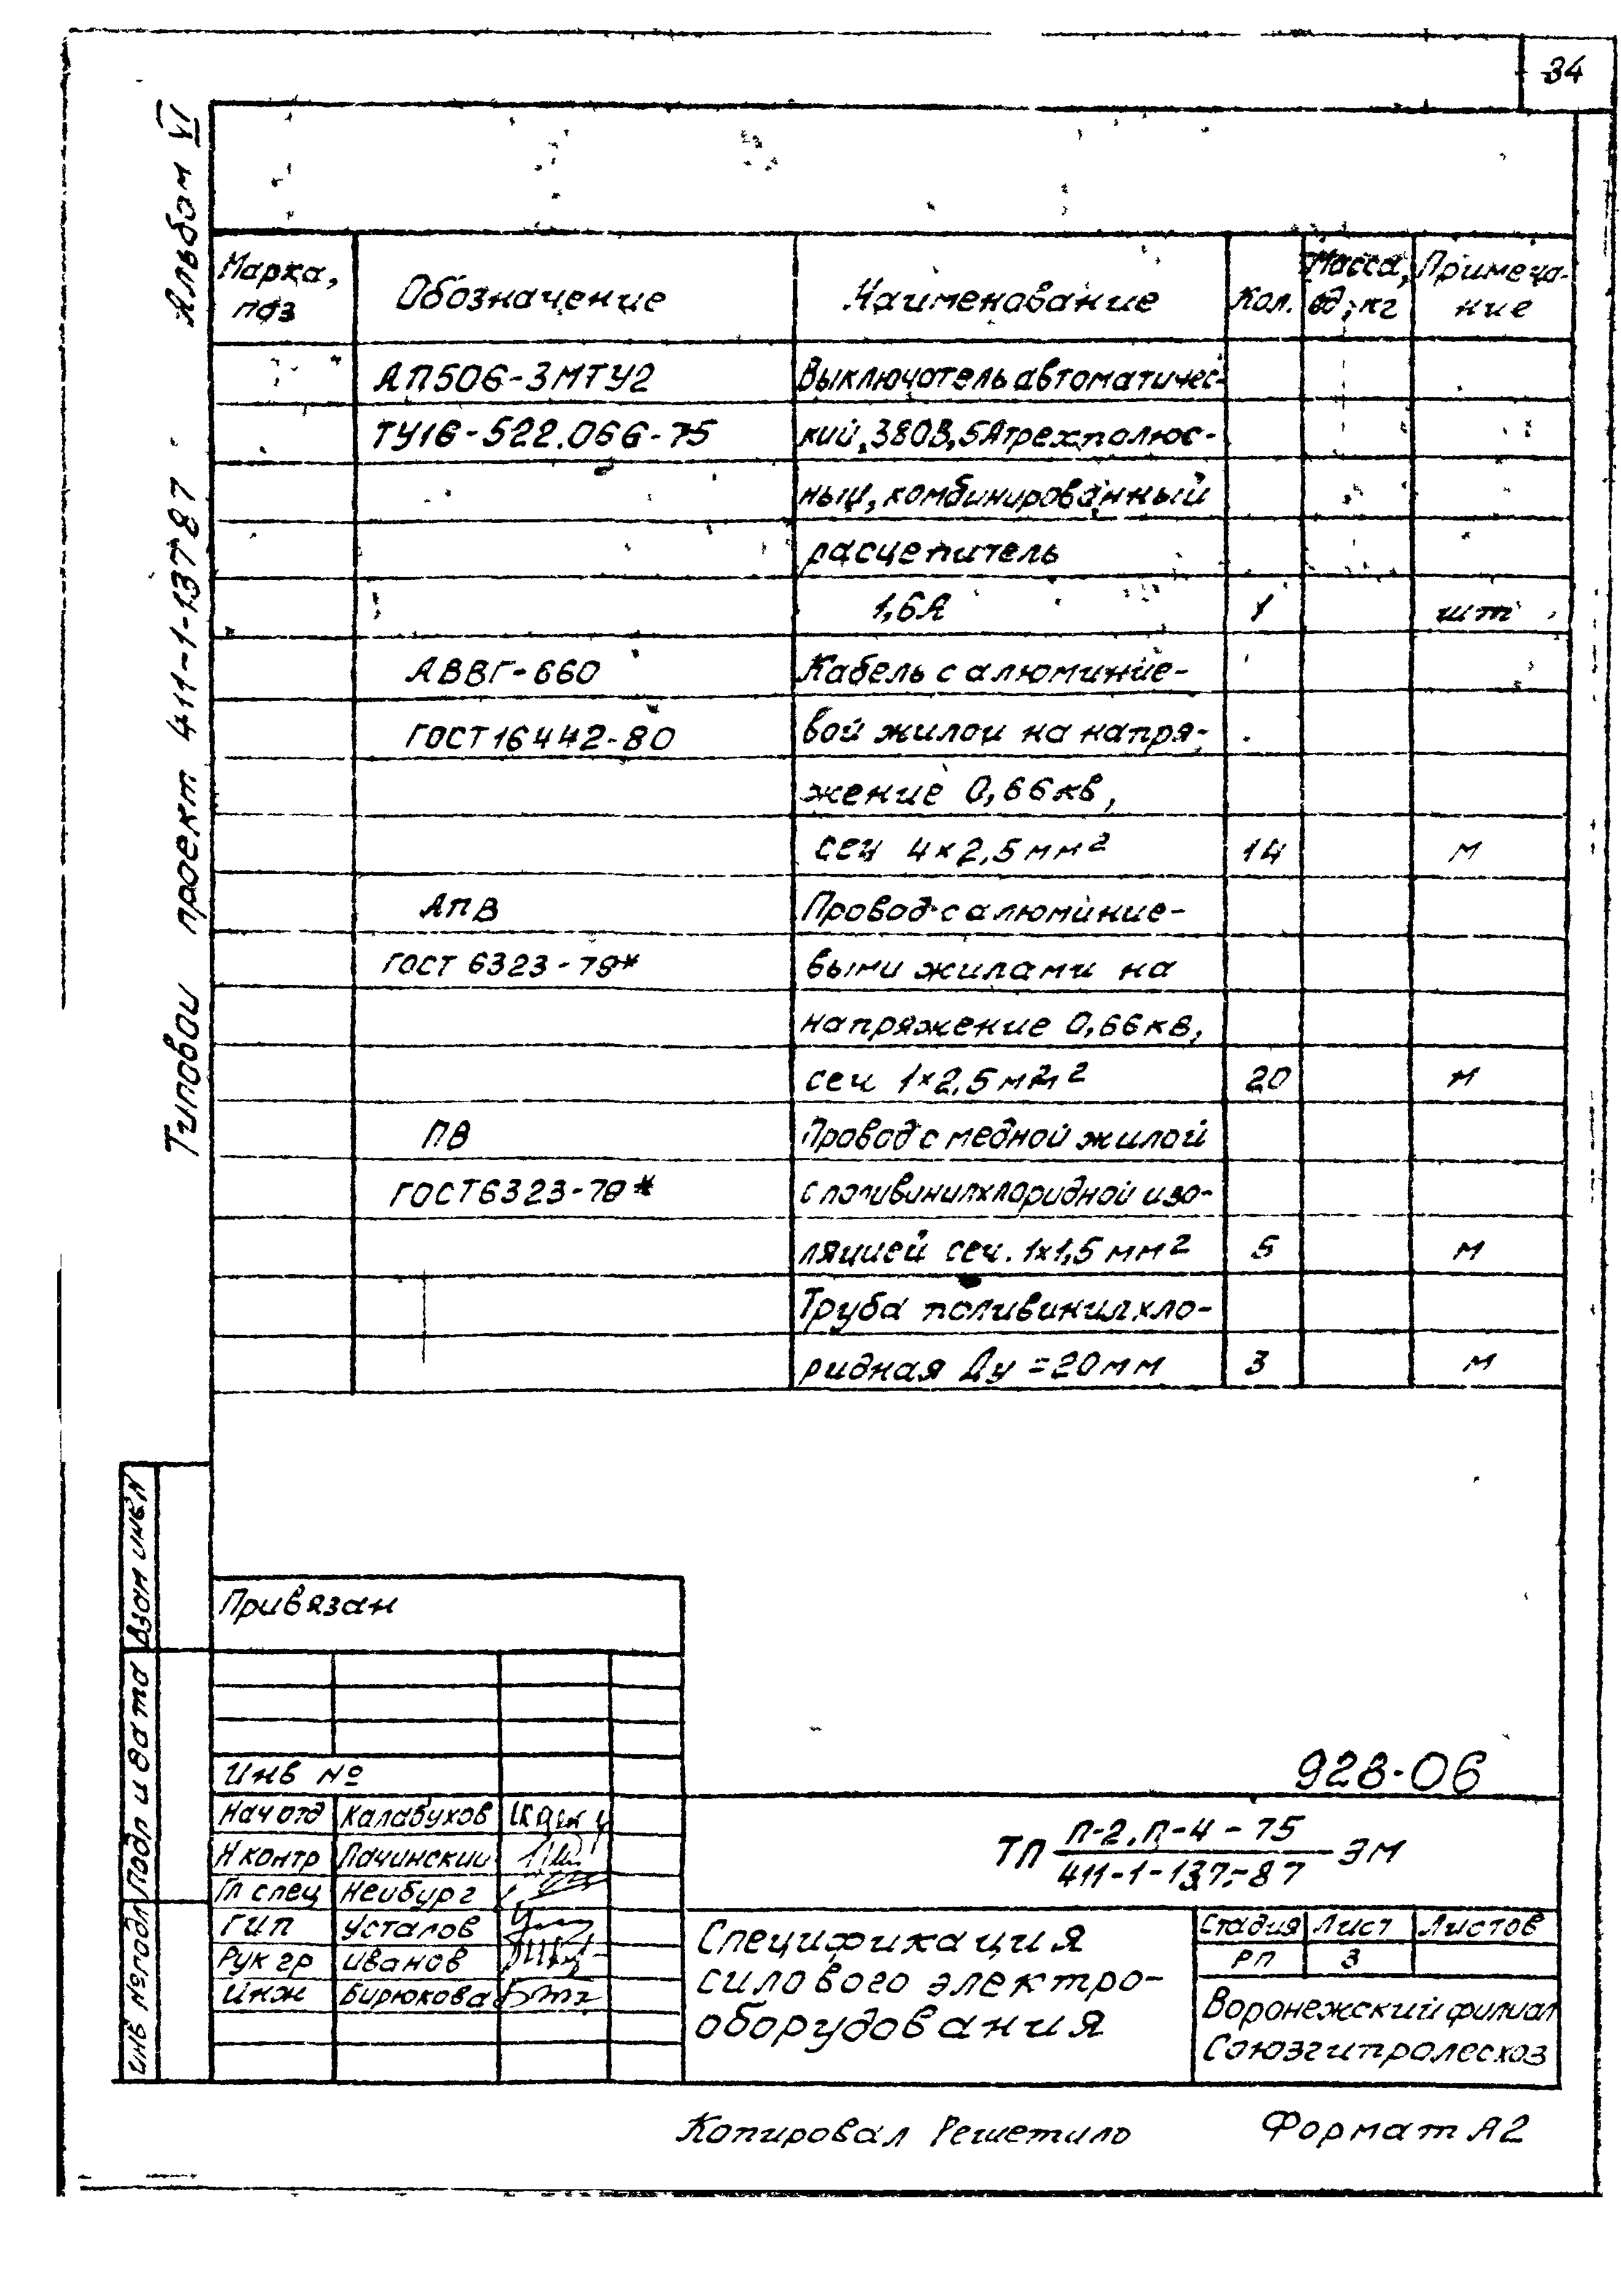 34
Альбом VI
Типовой проект 411-1-137 87
Марка, поз Обозначение Наименование Кол. Масса, ед, кг Примеча-ние
АП50Б-3МТУ2 Выключатель автоматичес-
ТУ16-522.066-75 кий, 380В, 5А трехполюс-
ный, комбинированный
расцепитель
1,6А 1 шт
АВВГ-660 Кабель с алюминие-
ГОСТ 16442-80 вой жилой на напря-
жение 0,66кв,
сеч 4×2,5 мм² 14 м
АПВ Провод с алюминие-
ГОСТ 6323-79* выми жилами на
напряжение 0,66кв,
сеч 1×2,5 мм² 20 м
ПВ Провод с медной жилой
ГОСТ 6323-79* с поливинилхлоридной изо-
ляцией сеч. 1х1,5 мм² 5 м
Труба поливинилхло-
ридная Ду = 20мм 3 м
Взам инв N
Подп и дата
Инв № подл
Привязан
Инв №
928-06
Нач отд Калабухов
Н контр Пачинский
Гл спец Нейбург
ГИП Усталов
Рук гр Иванов
Инж Бирюкова
ТП П-2, П-4-75 / 411-1-137-87 ЭМ
Спецификация
силового электро-
оборудования
Стадия Лист Листов
РП 3
Воронежский филиал
Союзгипролесхоз
Копировал Решетило Формат А2